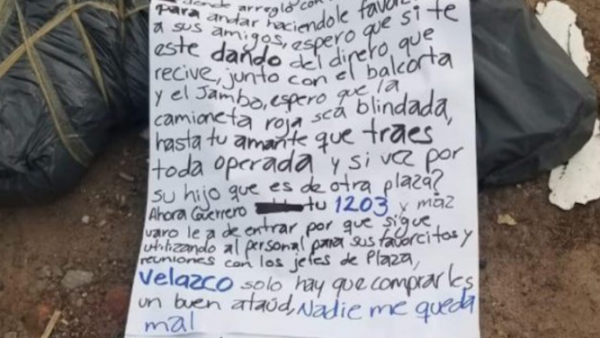 donde arregló con
para andar haciendole favor
a sus amigos, espero que si te
este dando del direro que
recive, junto con el balcorta
y el Jambo, espero que la
camioneta roja sea blindada,
hasta tu amante que traes
toda operada y si vez por
su hijo que es de otra plaza?
Ahora Guerrero tu 1203 y maz
varo le a de entrar por que sigue
utilizando al personal para sus favorcitos y
reuniones con los jefes de Plaza,
Velazco solo hay que comprarles
un buen ataúd, Nadie me queda
mal